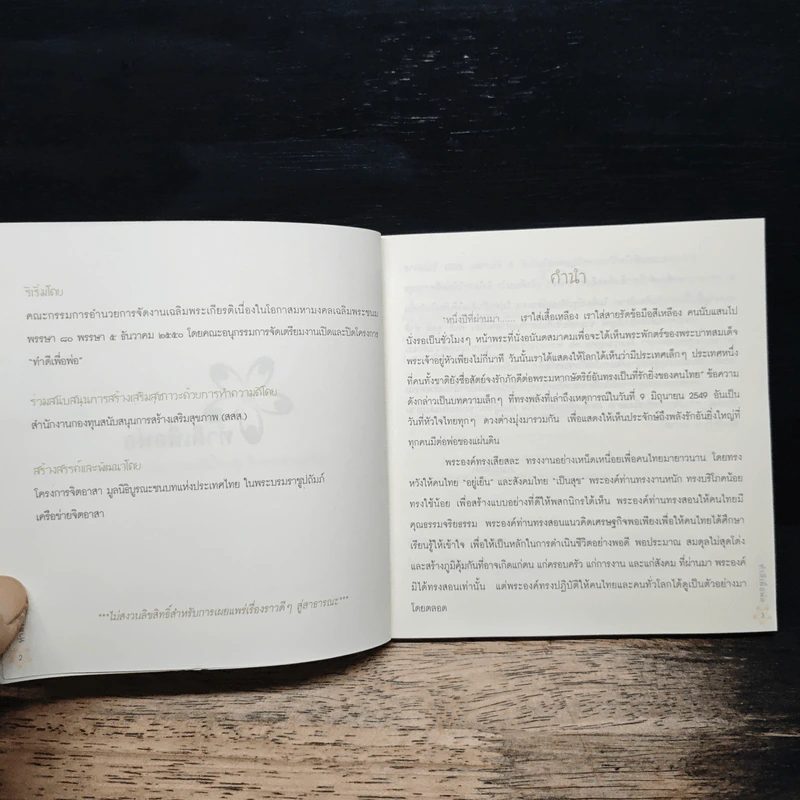 ริเริ่มโดย
คณะกรรมการอำนวยการจัดงานเฉลิมพระเกียรติเนื่องในโอกาสมหามงคลเฉลิมพระชนม
พรรษา ๘๐ พรรษา ๕ ธันวาคม ๒๕๕๐ โดยคณะอนุกรรมการจัดเตรียมงานเปิดและปิดโครงการ
"ทำดีเพื่อพ่อ"
ร่วมสนับสนุนการสร้างเสริมสุขภาวะด้วยการทำความดีโดย
สำนักงานกองทุนสนับสนุนการสร้างเสริมสุขภาพ (สสส.)
สร้างสรรค์และพัฒนาโดย
โครงการจิตอาสา มูลนิธิบูรณะชนบทแห่งประเทศไทย ในพระบรมราชูปถัมภ์
เครือข่ายจิตอาสา
***ไม่สงวนลิขสิทธิ์สำหรับการเผยแพร่เรื่องราวดีๆ สู่สาธารณะ***
2
คำนำ
"หนึ่งปีที่ผ่านมา...... เราใส่เสื้อเหลือง เราใส่สายรัดข้อมือสีเหลือง คนนับแสนไป
นั่งรอเป็นชั่วโมงๆ หน้าพระที่นั่งอนันตสมาคมเพื่อจะได้เห็นพระพักตร์ของพระบาทสมเด็จ
พระเจ้าอยู่หัวเพียงไม่กี่นาที วันนั้นเราได้แสดงให้โลกได้เห็นว่ามีประเทศเล็กๆ ประเทศหนึ่ง
ที่คนทั้งชาติยังซื่อสัตย์จงรักภักดีต่อพระมหากษัตริย์อันทรงเป็นที่รักยิ่งของคนไทย" ข้อความ
ดังกล่าวเป็นบทความเล็กๆ ที่ทรงพลังที่เล่าถึงเหตุการณ์ในวันที่ 9 มิถุนายน 2549 อันเป็น
วันที่หัวใจไทยทุกๆ ดวงต่างมุ่งมารวมกัน เพื่อแสดงให้เห็นประจักษ์ถึงพลังรักอันยิ่งใหญ่ที่
ทุกคนมีต่อพ่อของแผ่นดิน
พระองค์ทรงเสียสละ ทรงงานอย่างเหน็ดเหนื่อยเพื่อคนไทยมายาวนาน โดยทรง
หวังให้คนไทย "อยู่เย็น" และสังคมไทย "เป็นสุข" พระองค์ท่านทรงงานหนัก ทรงบริโภคน้อย
ทรงใช้น้อย เพื่อสร้างแบบอย่างที่ดีให้พสกนิกรได้เห็น พระองค์ท่านทรงสอนให้คนไทยมี
คุณธรรมจริยธรรม พระองค์ท่านทรงสอนแนวคิดเศรษฐกิจพอเพียงเพื่อให้คนไทยได้ศึกษา
เรียนรู้ให้เข้าใจ เพื่อให้เป็นหลักในการดำเนินชีวิตอย่างพอดี พอประมาณ สมดุลไม่สุดโต่ง
และสร้างภูมิคุ้มกันที่อาจเกิดแก่ตน แก่ครอบครัว แก่การงาน และแก่สังคม ที่ผ่านมา พระองค์
มิได้ทรงสอนเท่านั้น แต่พระองค์ทรงปฏิบัติให้คนไทยและคนทั่วโลกได้ดูเป็นตัวอย่างมา
โดยตลอด
ทำดีเพื่อพ่อ